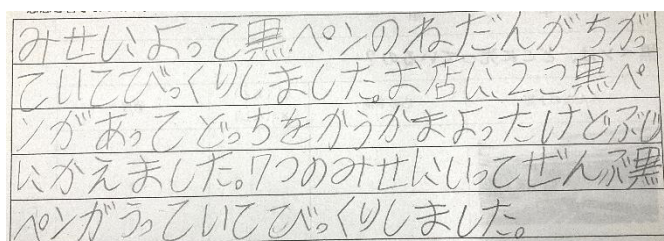 みせによって黒ペンのねだんがちがっ
ていてびっくりしました。お店に、2こ黒ペ
ンがあってどっちをかうかまよったけどぶじ
にかえました。7つのみせにいってぜんぶ黒
ペンがうっていてびっくりしました。